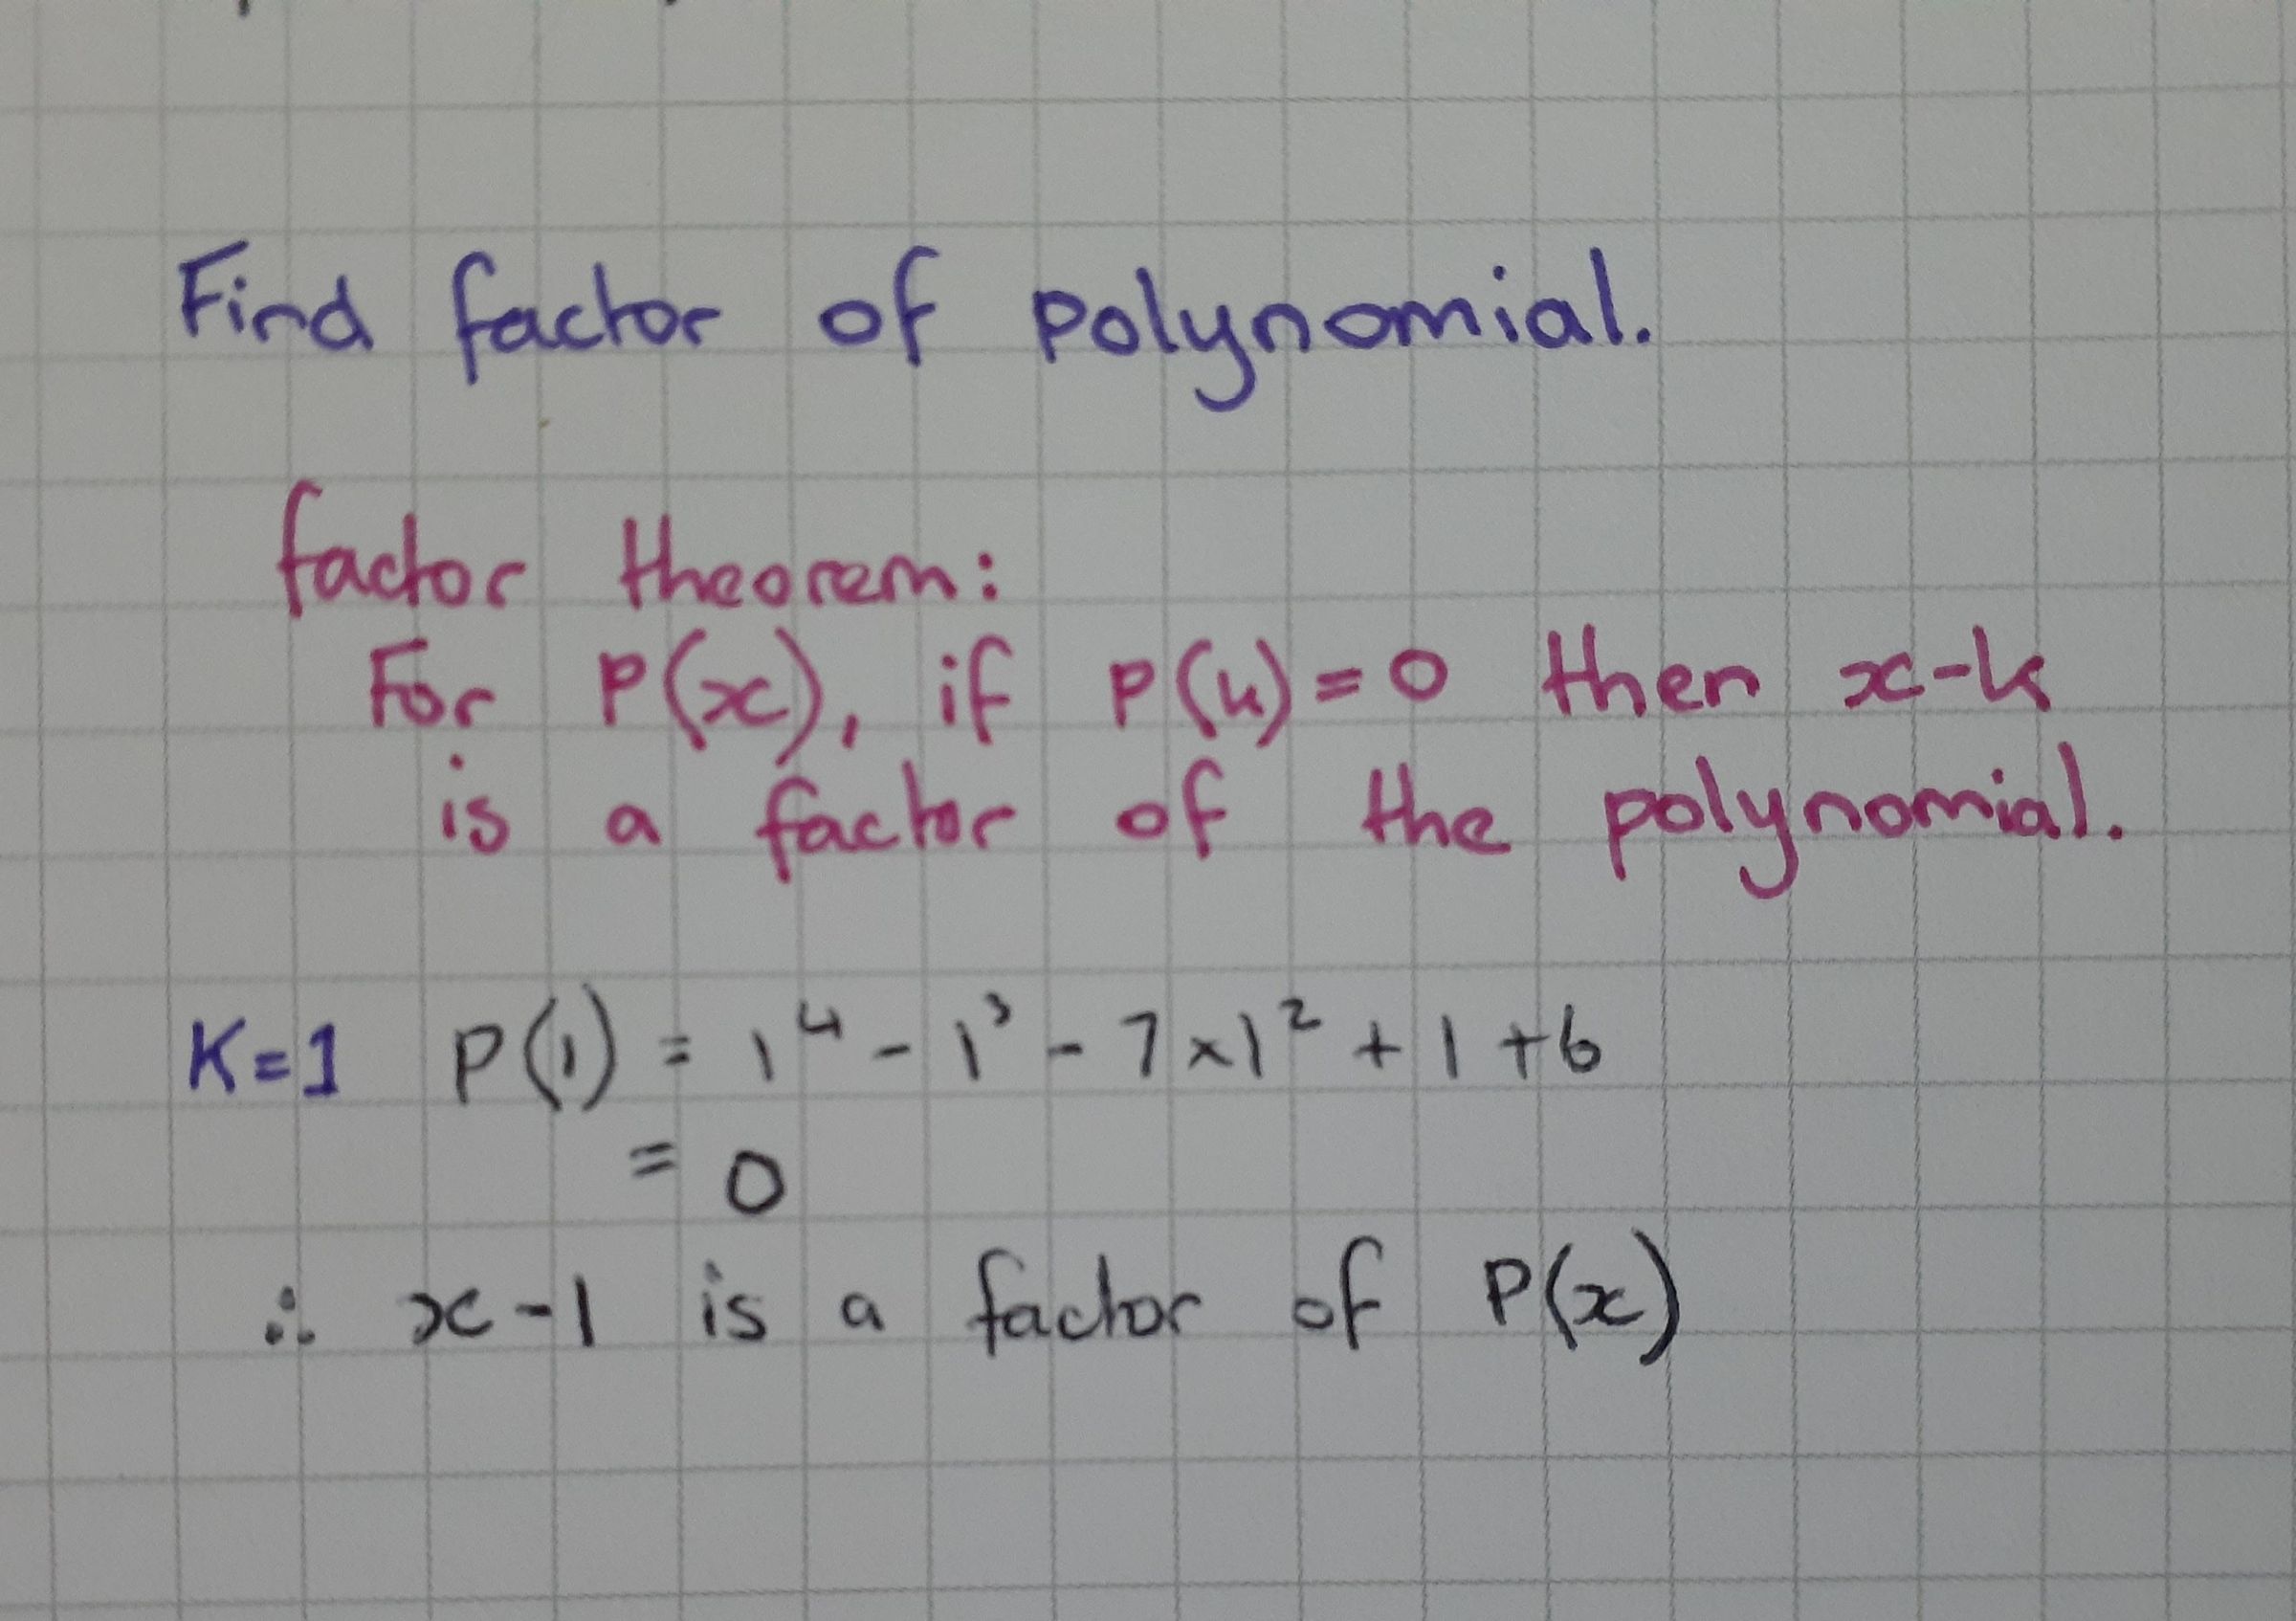 Find factor of polynomial.
factor theorem:
For P(x), if P(k)=0 then x-k
is a factor of the polynomial.
K=1 P(1) = 1⁴ - 1³ - 7×1² + 1 + 6
= 0
∴ x-1 is a factor of P(x)